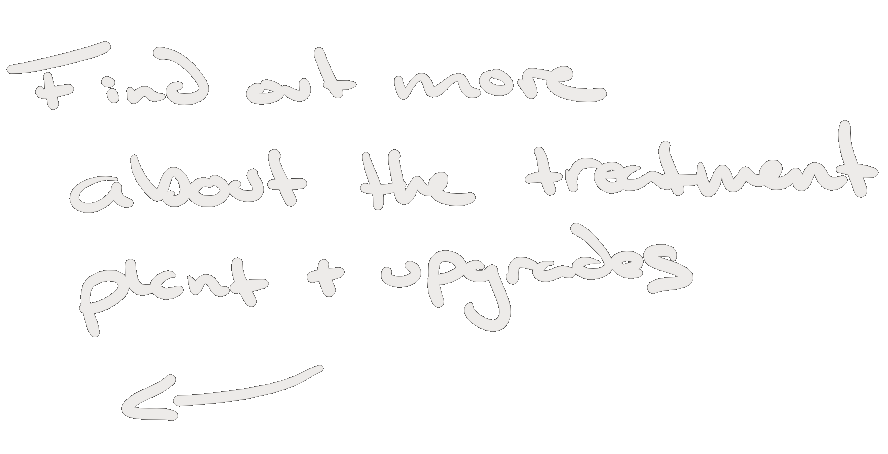 Find out more
about the treatment
plant + upgrades